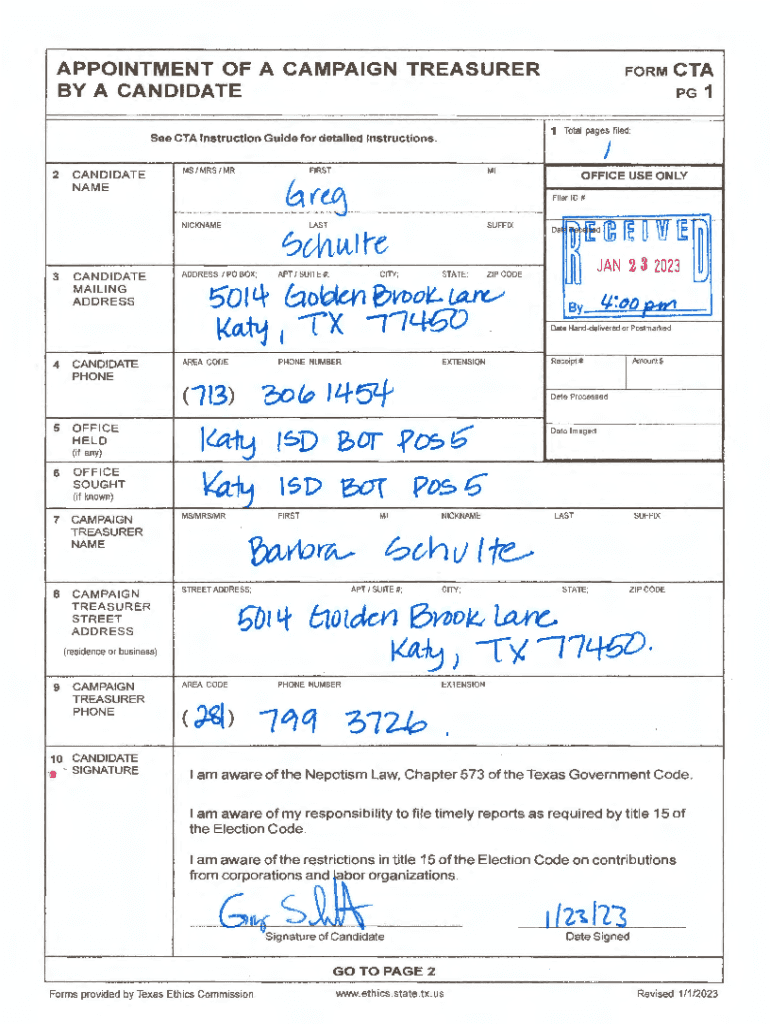 APPOINTMENT OF A CAMPAIGN TREASURER
BY A CANDIDATE
FORM CTA
PG 1
See CTA Instruction Guide for detailed instructions.
1 Total pages filed:
1
2 CANDIDATE
NAME
MS / MRS / MR FIRST MI
Greg
NICKNAME LAST SUFFIX
Schulte
OFFICE USE ONLY
Filer ID #
Date Received
RECEIVED
JAN 23 2023
By 4:00 pm
3 CANDIDATE
MAILING
ADDRESS
ADDRESS / PO BOX; APT / SUITE #; CITY; STATE; ZIP CODE
5014 Golden Brook Lane
Katy, TX 77450
Date Hand-delivered or Postmarked
4 CANDIDATE
PHONE
AREA CODE PHONE NUMBER EXTENSION
(713) 306 1454
Receipt # Amount $
Date Processed
Date Imaged
5 OFFICE
HELD
(if any)
Katy ISD BOT POS 5
6 OFFICE
SOUGHT
(if known)
Katy ISD BOT POS 5
7 CAMPAIGN
TREASURER
NAME
MS/MRS/MR FIRST MI NICKNAME LAST SUFFIX
Barbra Schulte
8 CAMPAIGN
TREASURER
STREET
ADDRESS
(residence or business)
STREET ADDRESS; APT / SUITE #; CITY; STATE; ZIP CODE
5014 Golden Brook Lane
Katy, TX 77450.
9 CAMPAIGN
TREASURER
PHONE
AREA CODE PHONE NUMBER EXTENSION
(281) 799 3726.
10 CANDIDATE
SIGNATURE
I am aware of the Nepotism Law, Chapter 573 of the Texas Government Code.
I am aware of my responsibility to file timely reports as required by title 15 of
the Election Code.
I am aware of the restrictions in title 15 of the Election Code on contributions
from corporations and labor organizations.
1/23/23
Signature of Candidate Date Signed
GO TO PAGE 2
Forms provided by Texas Ethics Commission www.ethics.state.tx.us Revised 1/1/2023